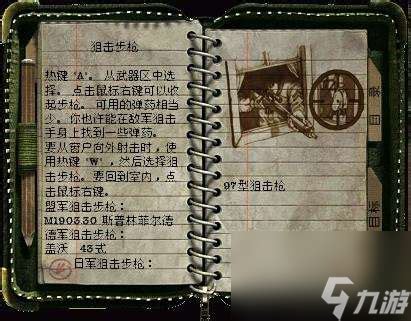 狙击步枪
热键 'A'。 从武器区中选
择。 点击鼠标右键可以收
起步枪。 可用的弹药相当
少。你也许能在敌军狙击
手身上找到一些弹药。
要从窗户向外射击时，使
用热键 'W'，然后选择狙
击步枪。要回到室内，点
击鼠标右键。
盟军狙击步枪：
M1903.30 斯普林菲尔德
德军狙击步枪：
盖沃 43式
日军狙击步枪：
97型狙击枪
目录
目标
九游